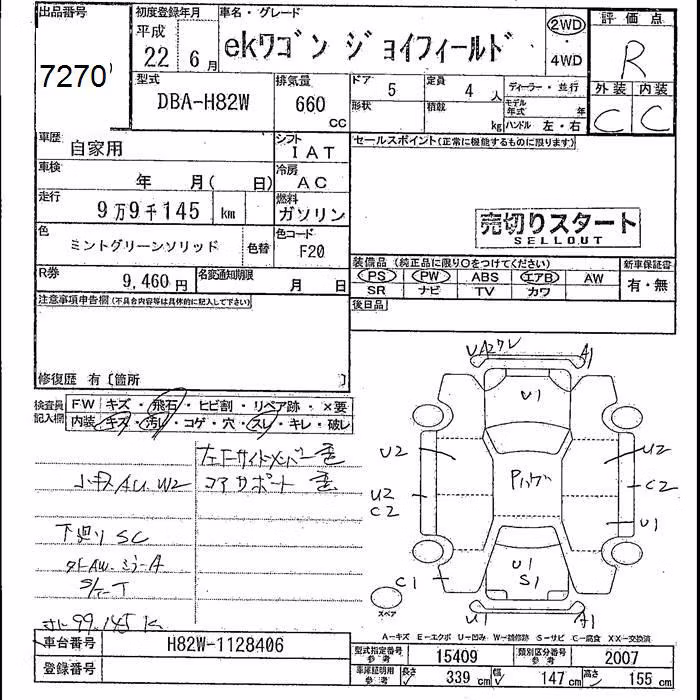 出品番号 初度登録年月 車名・グレード 評価点
7270 平成 22年 6月 ekワゴン ジョイフィールド 2WD・4WD R
型式 排気量 ドア 定員 ディーラー・並行 外装 内装
DBA-H82W 660 CC 5 4 人 モデル年式 年 C C
形状 積載 kg ハンドル 左・右
車歴 シフト セールスポイント(正常に機能するものに限ります)
自家用 IAT
車検 冷房
年 月( 日) AC
走行 燃料
9万9千145 km ガソリン 売切りスタート
色 色コード SELLOUT
ミントグリーンソリッド 色替 F20
装備品(純正品に限り○をつけてください) 新車保証書
R券 9,460円 名変通知期限 月 日 PS PW ABS エアB AW 有・無
SR ナビ TV カワ
注意事項申告欄(不具合内容等は具体的に記入して下さい) 後日品
修復歴 有〔箇所 〕
検査員記入欄 FW キズ・飛石・ヒビ割・リペア跡・×要
内装 キズ・汚レ・コゲ・穴・スレ・キレ・破レ
左Fサイドメンバー歪
小キズAU W2 コアサポート歪
下廻りSC
外AW ミラーA
S/T-T
メーター99,145K
UA2ワレ A1
U1
U2 U2
Pバック
U2 C2
C2
U1
U1
S1
C1
スペア U1 A1
A-キズ E-エクボ U-凹み W-補修跡 S-サビ C-腐食 XX-交換済
車台番号 H82W-1128406
型式指定番号 参考 15409 類別区分番号 参考 2007
登録番号
車庫証明用 参考 長さ 339 cm 幅 147 cm 高さ 155 cm